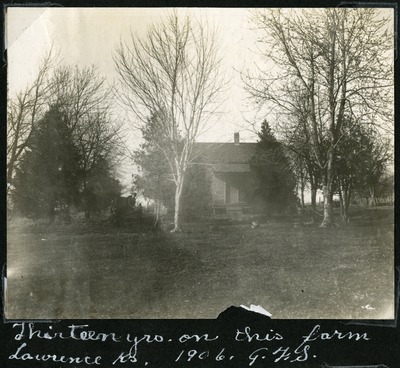 Thirteen yrs. on this farm
Lawrence Ks. 1906. G.F.S.